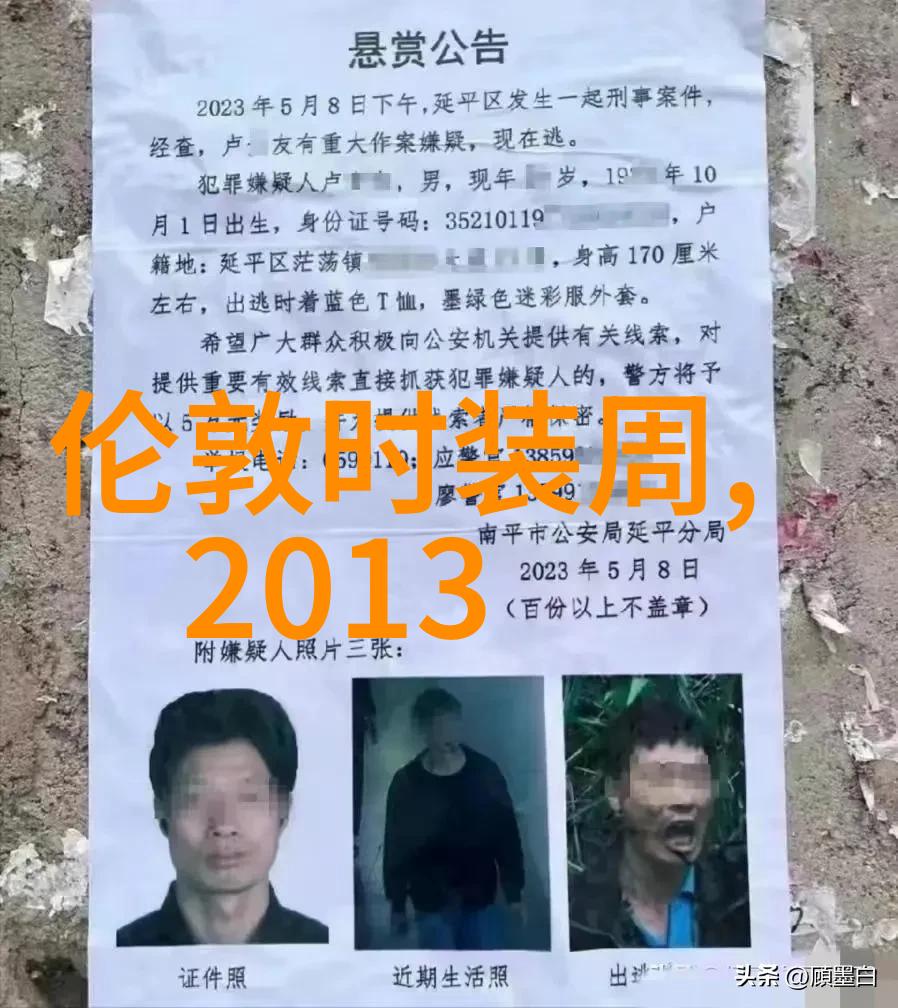 悬赏公告
2023年5月8日下午,延平区发生一起刑事案件,
经查,卢 友有重大作案嫌疑,现在逃。
犯罪嫌疑人卢 ,男,现年 岁,19 年10
月1日出生,身份证号码:35210119 ,户
籍地:延平区茫荡镇 ,身高170厘米
左右,出逃时着蓝色T恤,墨绿色迷彩服外套。
希望广大群众积极向公安机关提供有关线索,对
提供重要有效线索直接抓获犯罪嫌疑人的,警方将予
以5
伦敦时装周,
2013
廖警官
南平市公安局延平分局
2023年5月8日
(百份以上不盖章)
附嫌疑人照片三张:
证件照
近期生活照
出逃
头条 @顾墨白